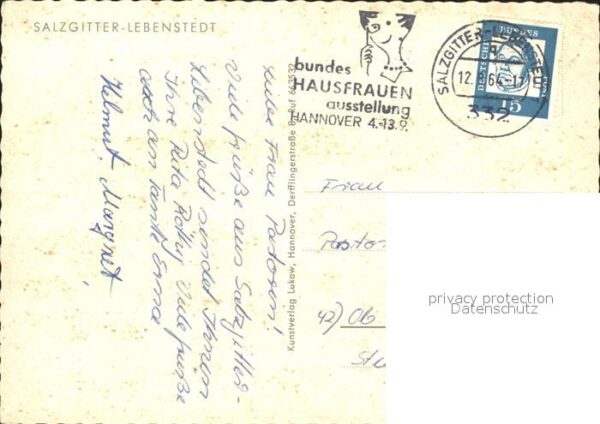 SALZGITTER-LEBENSTEDT
bundes
HAUSFRAUEN
ausstellung
HANNOVER 4.-13.9.
SALZGITTER-LEBENSTEDT
12. 64-17
332
DEUTSCHE BUNDESPOST
15
Liebe Frau Pastorin!
Viele Grüße aus Salzgitter-
Lebenstedt sendet Ihnen
Ihre Rita Viele Grüße
auch an Tante Erna.
Helmut, Margret
Kunstverlag Lukow, Hannover, Derfflingerstraße 8, Ruf 663532
Frau
Pastor
42) Ob
St
privacy protection
Datenschutz